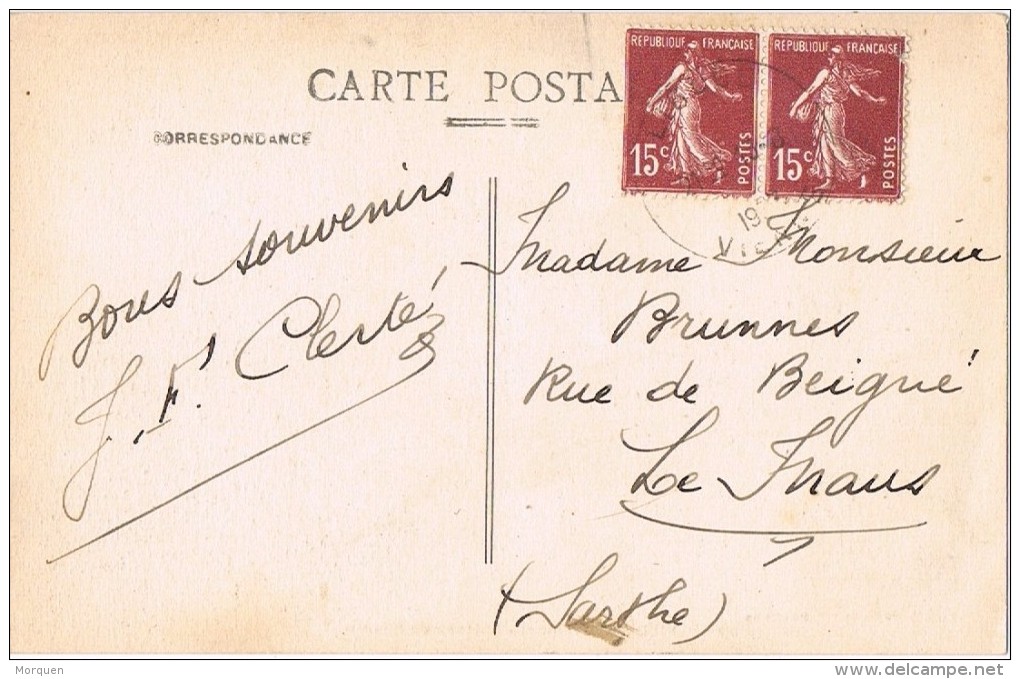 CARTE POSTA
CORRESPONDANCE
REPUBLIQUE FRANÇAISE
15c
POSTES
REPUBLIQUE FRANÇAISE
15c
POSTES
Bons souvenirs
J. F. Clerté
Madame Monsieur
Brunnes
Rue de Beigné
Le Mans
(Sarthe)
Morquen
www.delcampe.net